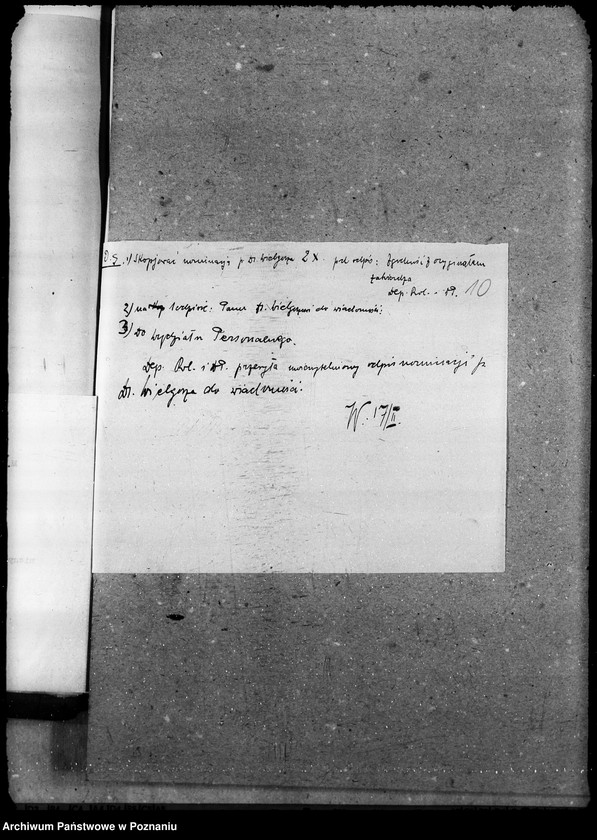 D.S. 1) Skopjować nominację p. Dr. Wielgosza 2 x pod odpis: Zgodność z oryginałem
zatwierdza
Dep. Rol. i
10
2) 1 odpis: Panu Dr. do wiadomości;
3) Do Wydziału Personalnego.
Dep. Rol. i przesyła uwierzytelniony odpis nominacji p.
Dr. Wielgosza do wiadomości.
W. 17/II.
Archiwum Państwowe w Poznaniu